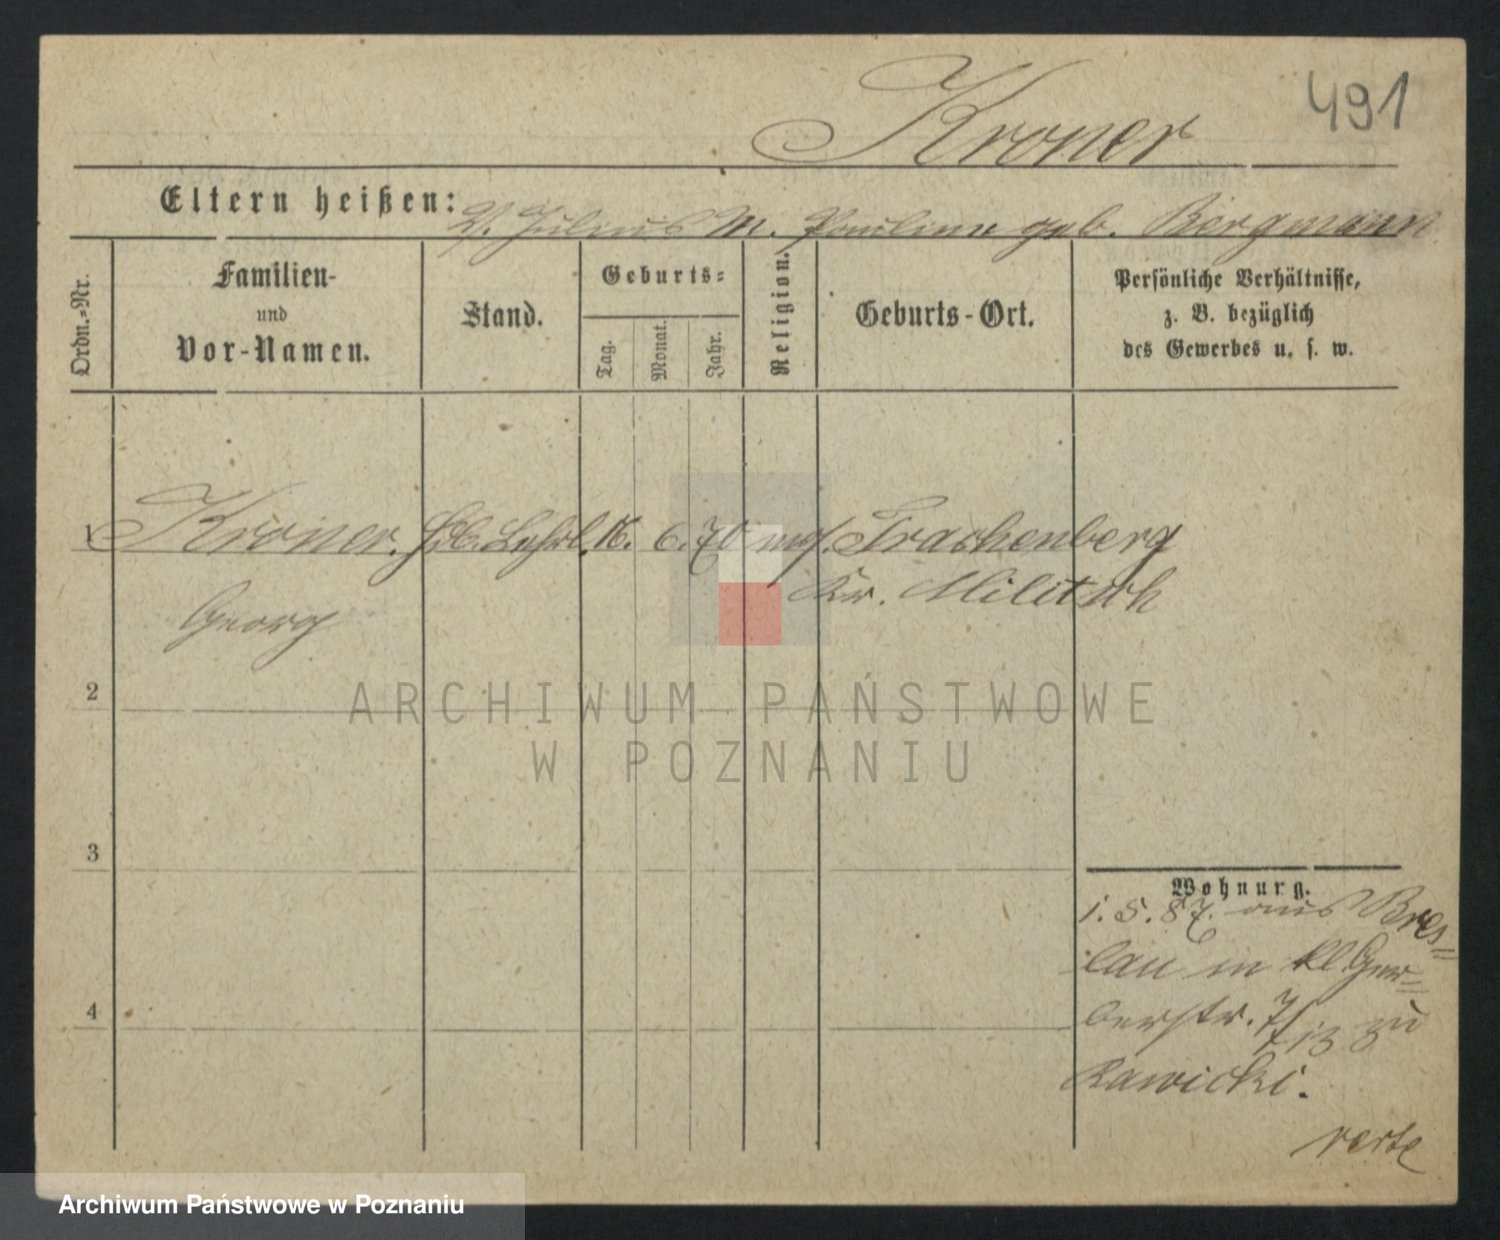 491
Kroner
Eltern heißen: V. Julius M. Pauline geb. Bergmann
Ordn.-Nr.
Familien-
und
Vor-Namen.
Stand.
Geburts-
Tag.
Monat.
Jahr.
Religion.
Geburts-Ort.
Persönliche Verhältnisse,
z. B. bezüglich
des Gewerbes u. s. w.
1 Kroner. Hdl. Lehrl. 16. 6. 70 mos. Trachenberg
Kr. Militsch
Georg
2
3
4
Wohnung.
1. 5. 87. aus Bres=
lau in Kl Ger=
berstr. 7/13 zu
Rawicki.
verte
ARCHIWUM PAŃSTWOWE
W POZNANIU
Archiwum Państwowe w Poznaniu